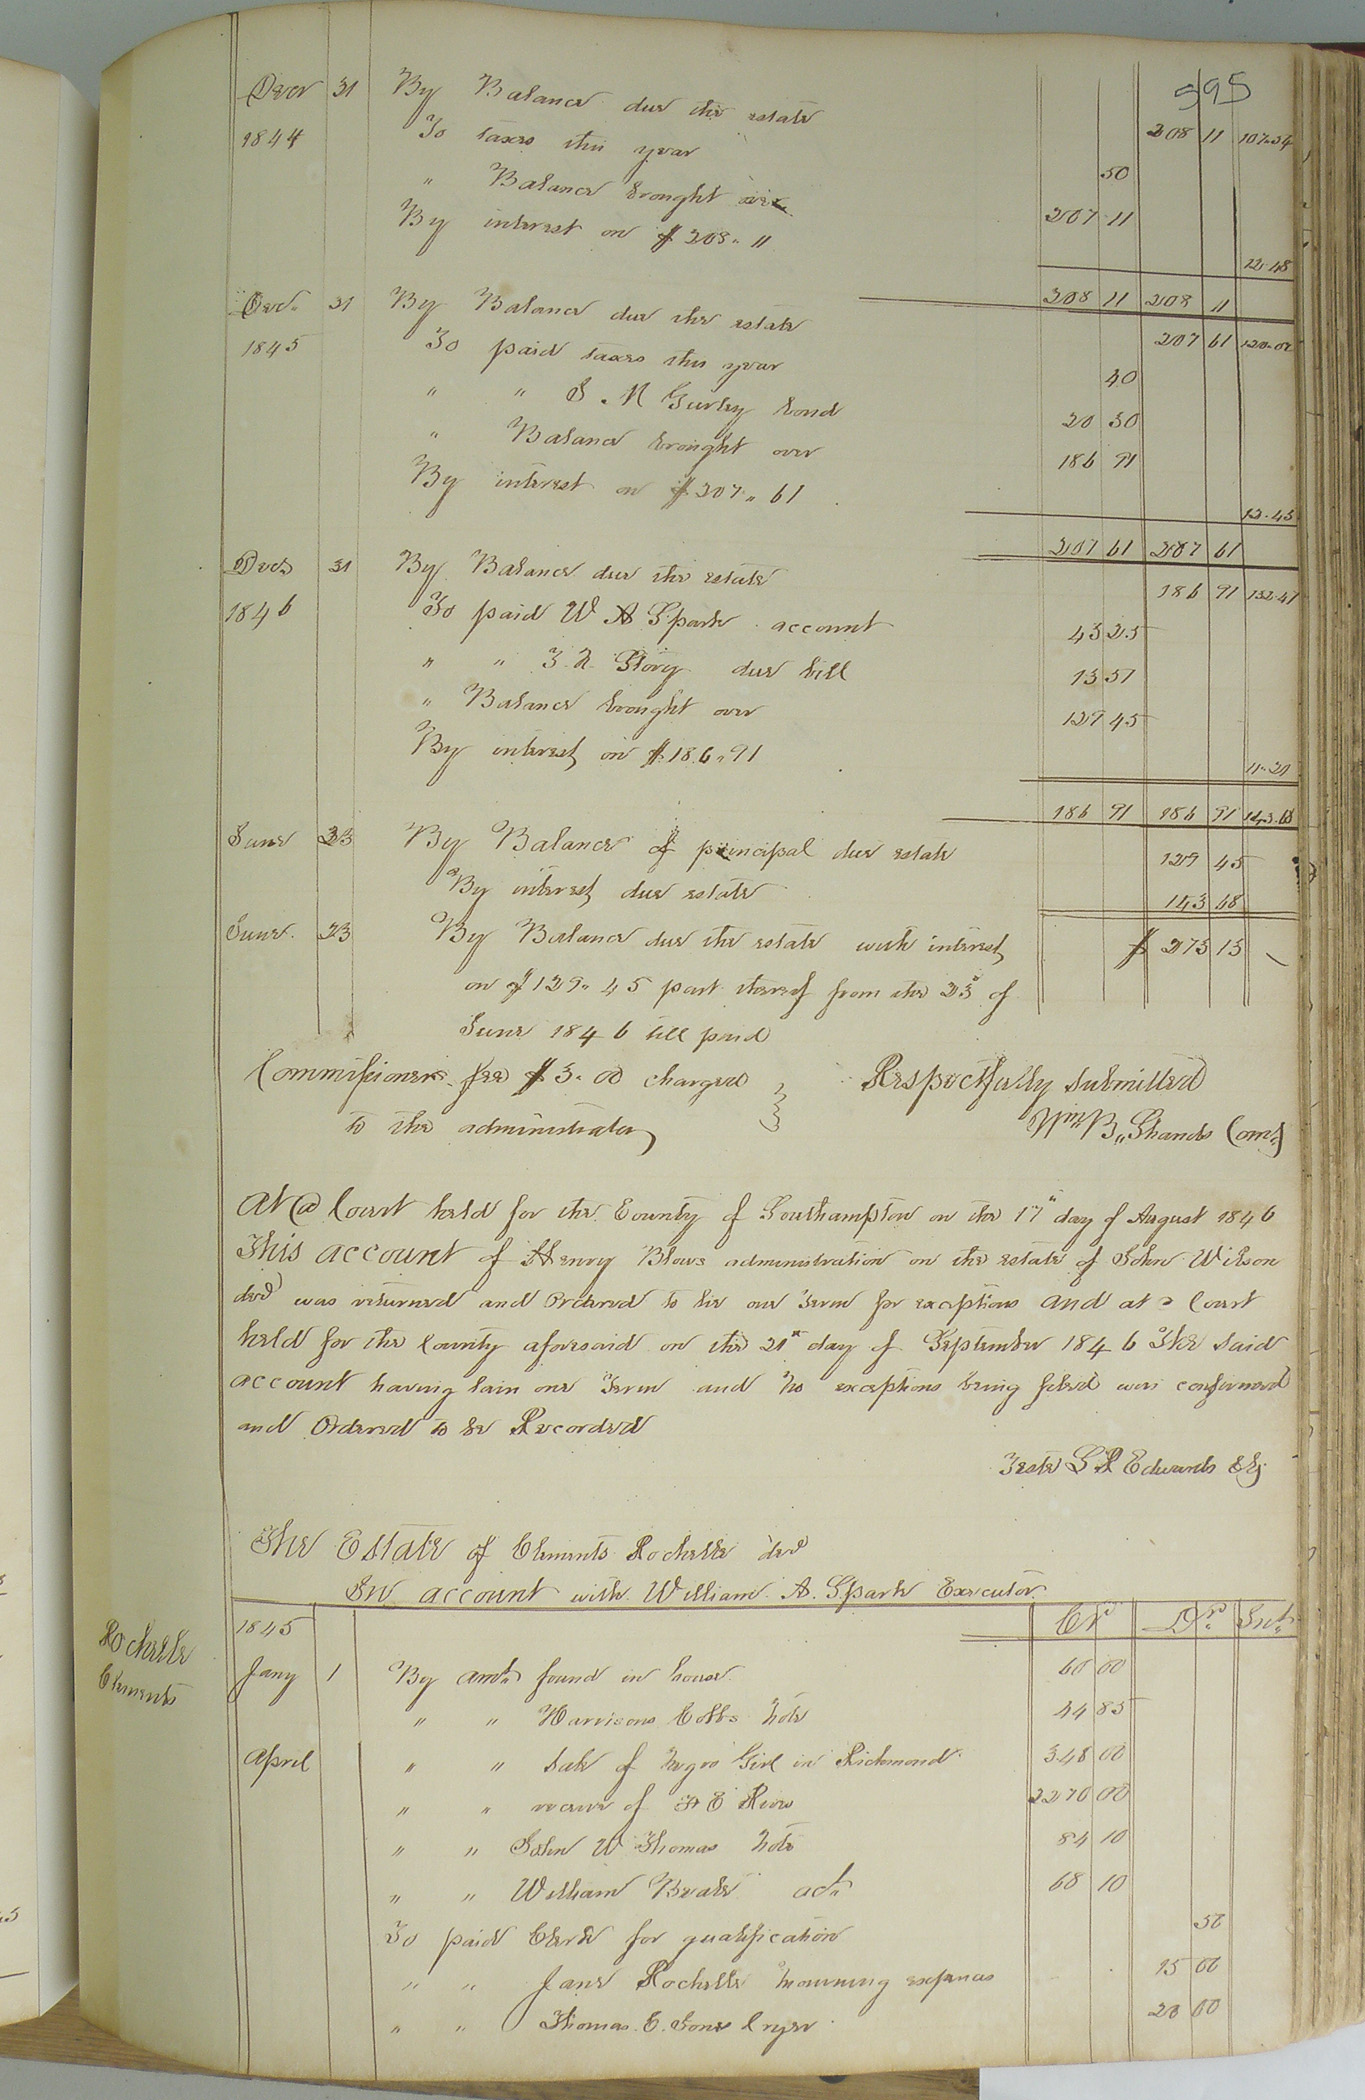 595
Decr 31 By Balance due the estate 208 11 107.54
1844 To taxes this year 50
" Balance brought over 207 11
By interest on $208.11 12.48
208 11 208 11
Dec. 31 By Balance due the estate 207 61 120.02
1845 To paid taxes this year 40
" " S. N Gurley bond 20 30
" Balance brought over 186 91
By interest on $207.61 12.45
207 61 207 61
Decr 31 By Balance due the estate 186 91 132.47
1846 To paid W A Spark account 43 25
" " Story due bill 13 51
" Balance brought over 129 45
By interest on $186.91 11.21
186 91 186 91 143.68
June 23 By Balance of principal due estate 129 45
By interest due estate 143 68
June 23 By Balance due the estate with interest $ 273 13
on $129.45 part thereof from the 23d of
June 1846 till paid
Commissioners fee $3.00 charged
to the administrator
Respectfully submitted
Wm B. Shands Comr
At a Court held for the County of Southampton on the 17th day of August 1846
This account of Henry Blows administration on the estate of John Wilson
decd was returned and Ordered to lie one Term for exceptions and at a Court
held for the County aforesaid on the 21st day of September 1846 The said
account having lain one Term and no exceptions being filed was confirmed
and Ordered to be Recorded
Teste L R Edwards Clk
The Estate of Clements Rochelle decd
In account with William A. Spark Executor
1845 Cr Dr. Int.
Rochelle
Clements
Jany 1 By amt. found in house 60 00
" " Harrisons Cobbs note 44 85
April " " Sale of negro Girl in Richmond 348 00
" " receivd of E Rives 2270 00
" " John W Thomas note 84 10
" " William Beale act. 68 10
To paid Clerk for qualification 50
" " Jane Rochelle mourning expences 15 00
" " Thomas E. Jones Cryer 20 00